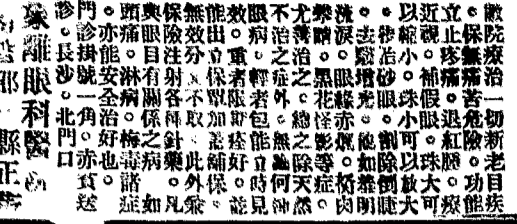 敝院療治一切新老目疾
。保無痛苦危險。功能
立止疼痛。退紅腫。療
近視。補假眼。珠大可
以縮小。珠小可以放大
。治砂眼。割除倒睫
。去翳增光。他如羞明
流淚。眼緣赤爛。胬肉
攀睛。黑花怪影等症。
尤善治之。總之除天然
不治之症外。無論何種
眼病。輕者包能立時見
效。重者限期痊好。並
能出立保單加蓋鋪保。
無效分文不取。此外兼
保險注射各種針藥。凡
與眼目有關係之病。如
頭痛。淋病。梅毒諸症
。亦能安全治好也。
門診掛號一角。赤貧送
診。長沙。北門口
離眼科醫
縣正